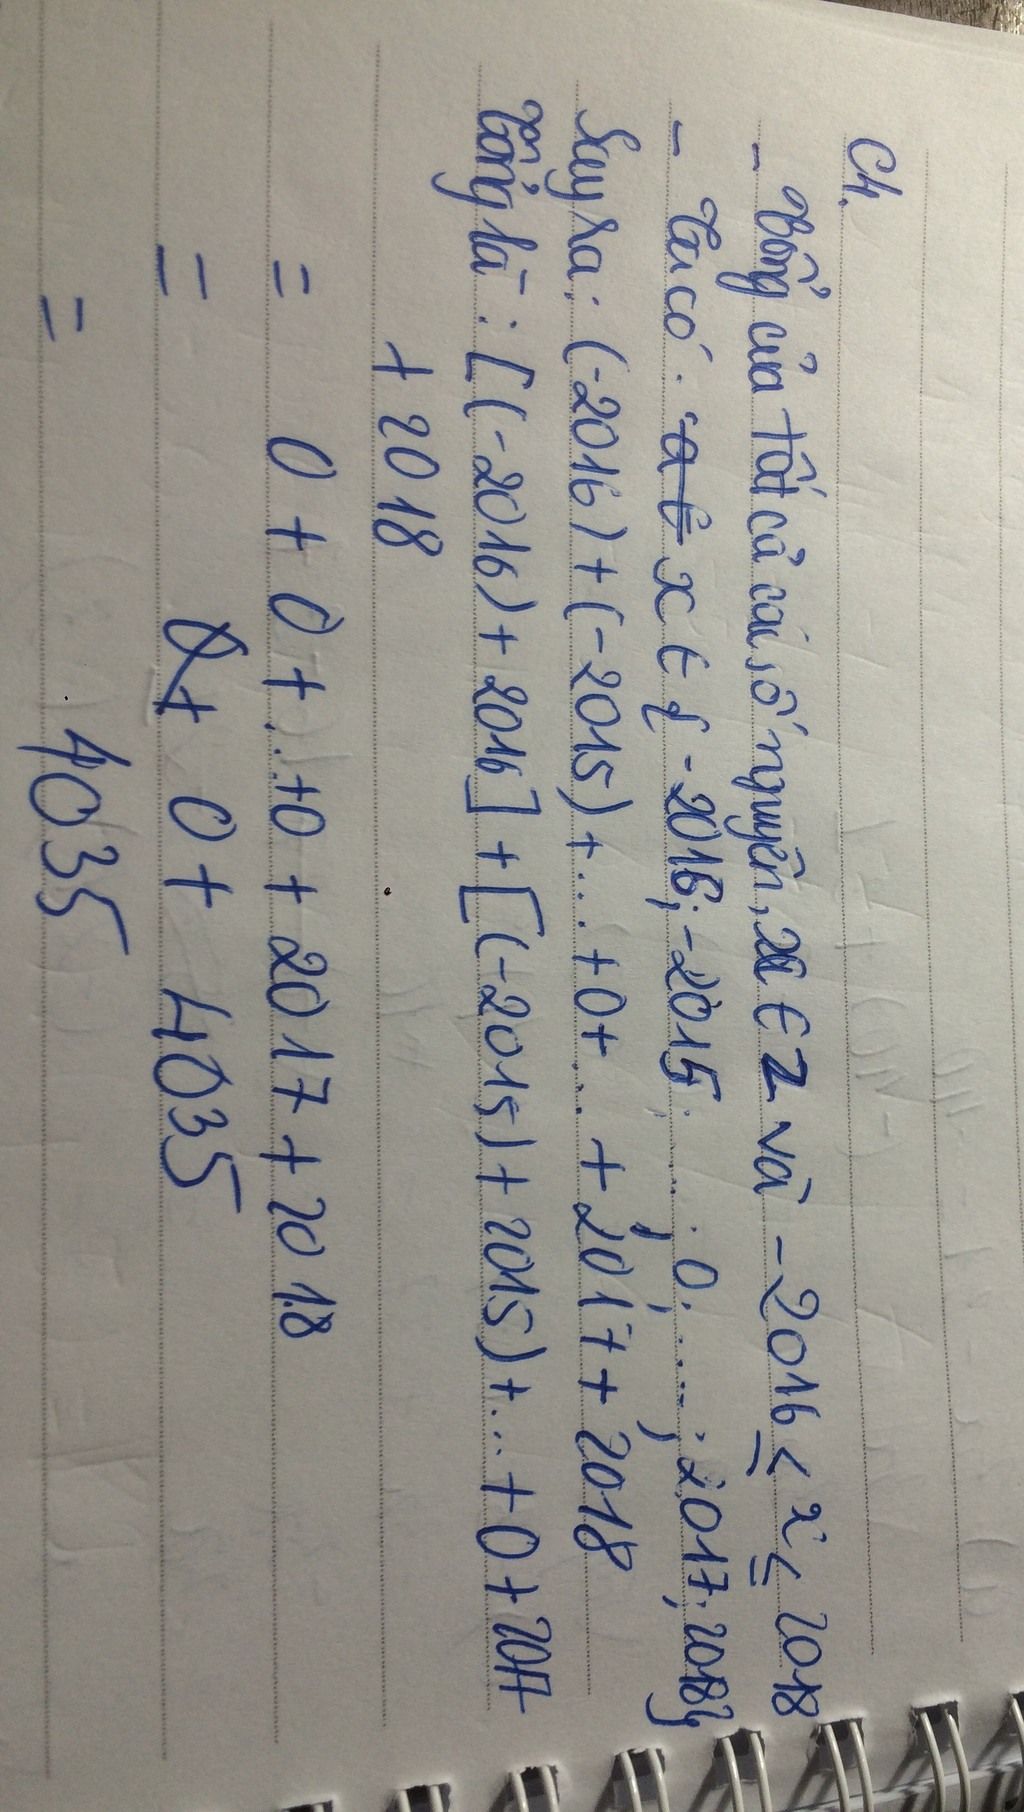 C4.
- Tổng của tất cả các số nguyên, x ∈ Z và -2016 ≤ x ≤ 2018
- Ta có: a ∈ x ∈ { -2016; -2015; ...; 0; ....; 2017; 2018}
Suy ra: (-2016) + (-2015) + ... + 0 + ... + 2017 + 2018
Tổng là: [(-2016) + 2016] + [(-2015) + 2015) + ... + 0 + 2017
+ 2018
= 0 + 0 + ... + 0 + 2017 + 2018
= 0 + 0 + 4035
= 4035